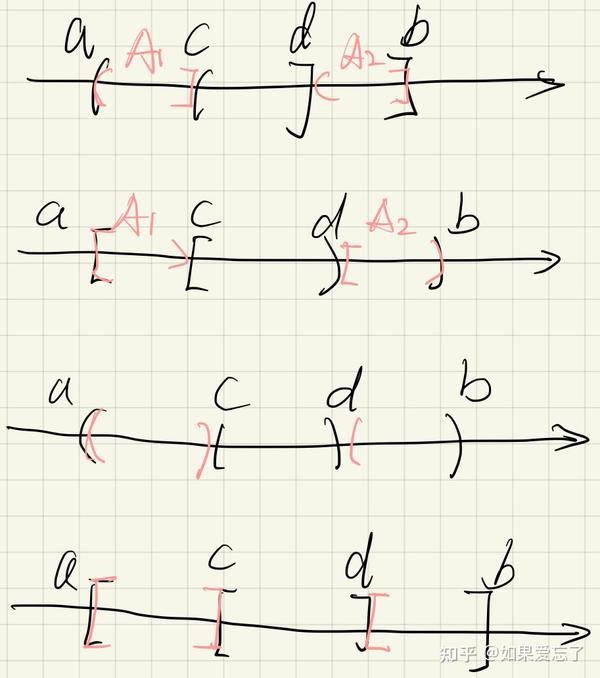 a A₁ c d A₂ b
a A₁ c d A₂ b
a c d b
a c d b
知乎 @如果爱忘了